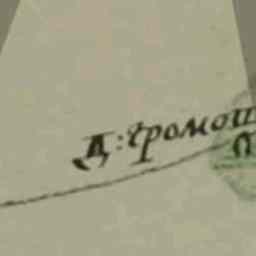 Д: громош